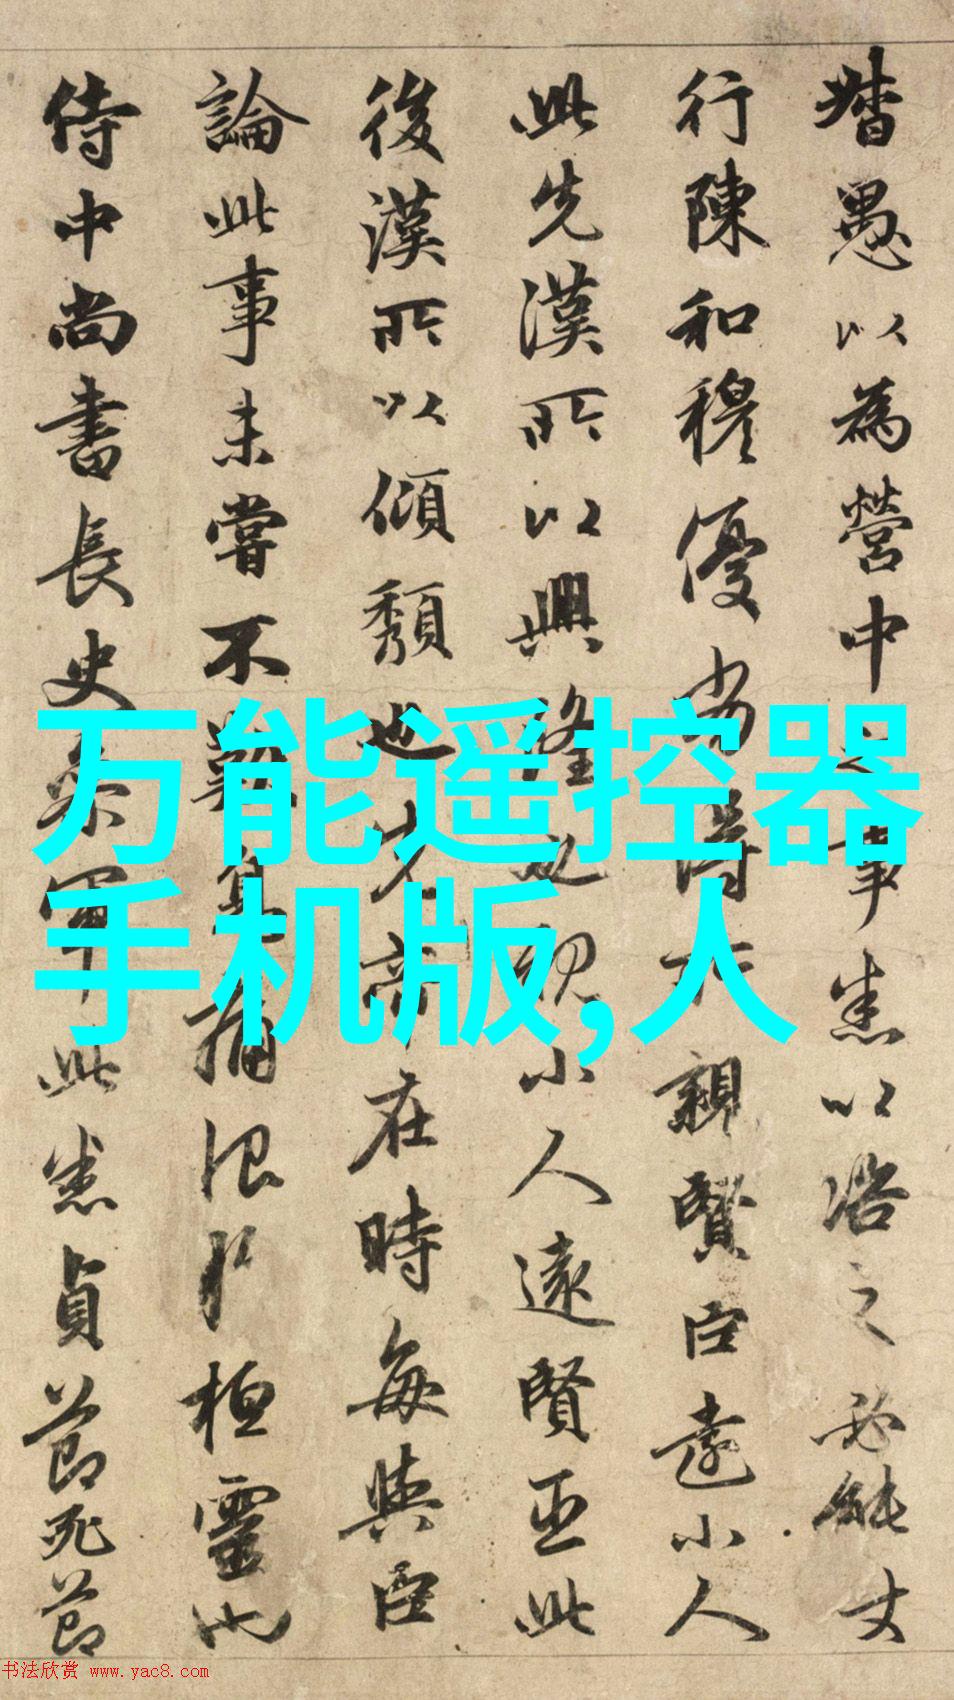 督愚以為營中之事悉以咨之必能丈
行陳和穆優劣得所親賢臣遠小人
此先漢所以興隆也親小人遠賢臣此
後漢所以傾頹也先帝在時每與臣
論此事未嘗不歎息痛恨於桓靈也
侍中尚書長史參軍此悉貞節死節
万能遥控器
手机版,人
书法欣赏 www.yac8.com